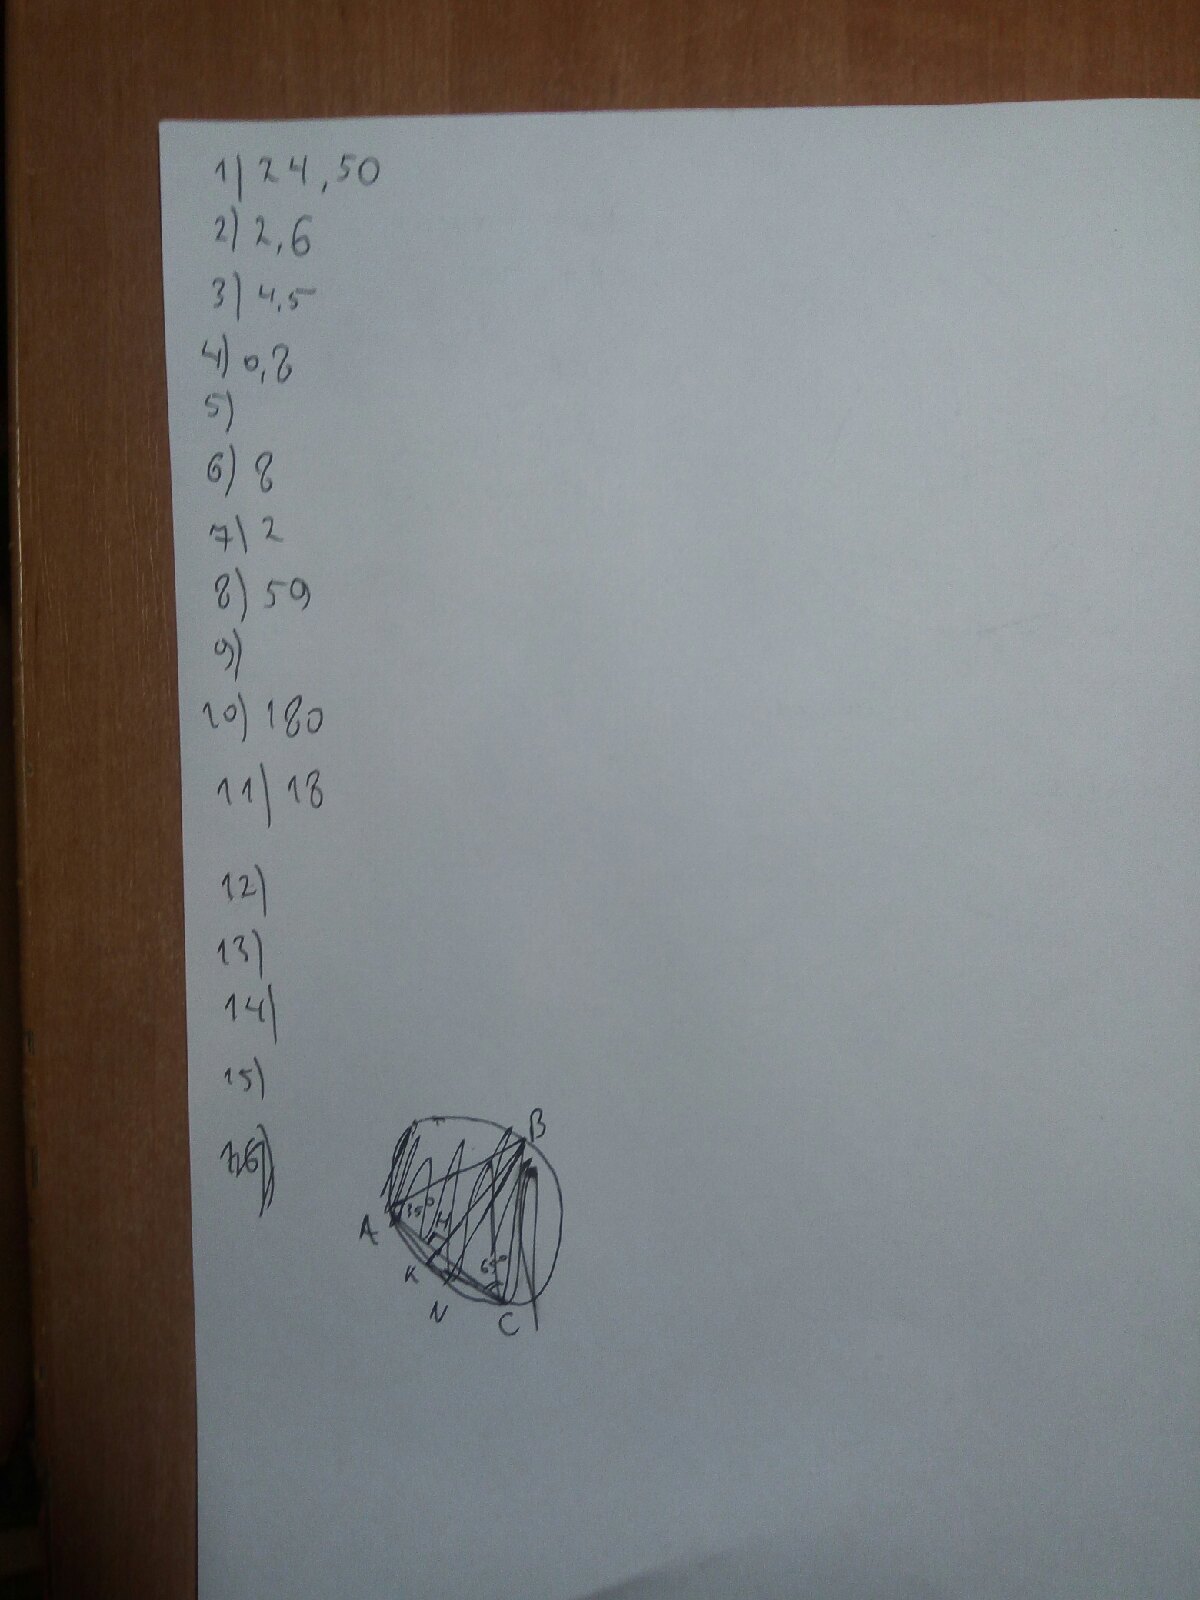 1) 24,50
2) 2,6
3) 4,5
4) 0,8
5)
6) 8
7) 2
8) 59
9)
10) 180
11) 18
12)
13)
14)
15)
16)
B
A
35°
H
K
65°
N
C